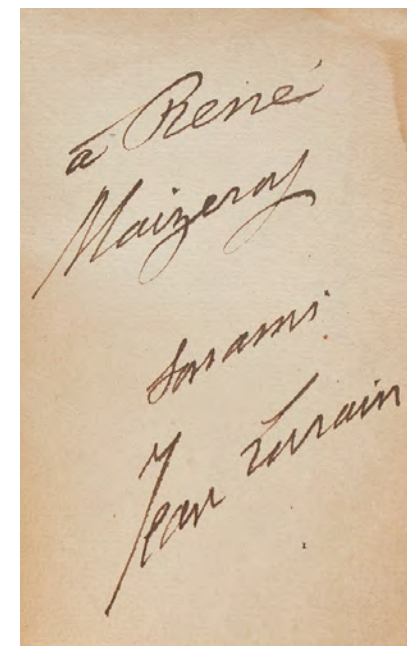 à René
Maizeroy
Son ami
Jean Lorrain